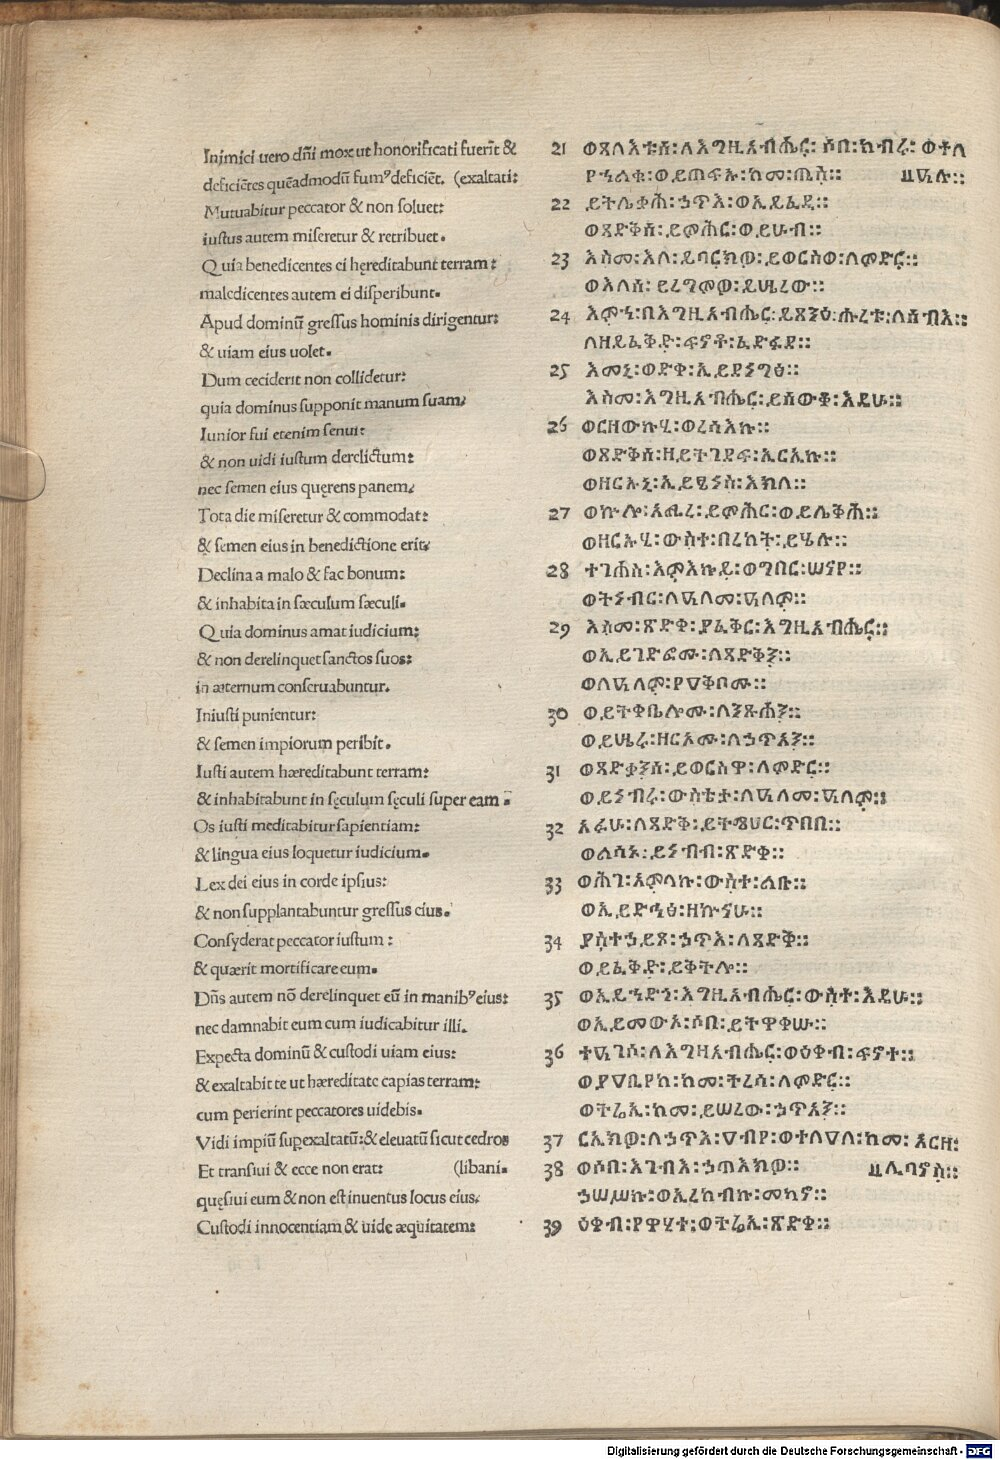 Inimici uero dñi mox ut honorificati fuerīt &
deficiētes quēadmodū fumꝰ deficiēt. (exaltati:
Mutuabitur peccator & non soluet:
iustus autem miseretur & retribuet.
Quia benedicentes ei hęreditabunt terram:
maledicentes autem ei disperibunt.
Apud dominū gressus hominis dirigentur:
& uiam eius uolet.
Dum ceciderit non collidetur:
quia dominus supponit manum suam.
Iunior fui etenim senui:
& non uidi iustum derelictum:
nec semen eius quęrens panem.
Tota die miseretur & commodat:
& semen eius in benedictione erit.
Declina a malo & fac bonum:
& inhabita in sæculum sæculi.
Quia dominus amat iudicium:
& non derelinquet sanctos suos:
in æternum conseruabuntur.
Iniusti punientur:
& semen impiorum peribit.
Iusti autem hæreditabunt terram:
& inhabitabunt in sęculum sęculi super eam.
Os iusti meditabitur sapientiam:
& lingua eius loquetur iudicium.
Lex dei eius in corde ipsius:
& non supplantabuntur gressus eius.
Consyderat peccator iustum:
& quærit mortificare eum.
Dñs autem nō derelinquet eū in manibꝰ eius:
nec damnabit eum cum iudicabitur illi.
Expecta dominū & custodi uiam eius:
& exaltabit te ut hæreditate capias terram:
cum perierint peccatores uidebis.
Vidi impiū supexaltatū: & eleuatū sicut cedros
Et transiui & ecce non erat: (libani.
quęsiui eum & non est inuentus locus eius.
Custodi innocentiam & uide æquitatem:
21 ወጸላእቱሰ፡ለእግዚአብሔር፡ሶበ፡ከብሩ፡ወተለ
ዐሉ፡ወይጠፍኡ፡ከመ፡ጢስ፡፡
22 ይትሌቃሕ፡ኃጥእ፡ወኢይፈዲ፡፡
ወጻድቅሰ፡ይምሕር፡ወይሁብ፡፡
23 እስመ፡እለ፡ይባርክዎ፡ይወርስዋ፡ለምድር፡፡
ወእለሰ፡ይረግምዎ፡ይሤረው፡፡
24 እምኀ፡በእግዚአብሔር፡ይጸንዕ፡ሑረቱ፡ለሰብእ፡፡
ለዘይፈቅድ፡ፍኖቶ፡ፈድፋደ፡፡
25 እመኒ፡ወድቀ፡ኢይደነግፅ፡፡
እስመ፡እግዚአብሔር፡ይሰውቆ፡እዴሁ፡፡
26 ወርዘውኩሂ፡ወረሳእኩ፡፡
ወጻድቅሰ፡ዘይትገደፍ፡ኢርኢኩ፡፡
ወዘርኡኒ፡ኢይፄነስ፡እክለ፡፡
27 ወኵሎ፡አሚረ፡ይምሕር፡ወይሌቅሕ፡፡
ወዘርኡሂ፡ውስተ፡በረከት፡ይሄሉ፡፡
28 ተገሐስ፡እምእኩይ፡ወግበር፡ሠናየ፡፡
ወትነብር፡ለዓለመ፡ዓለም፡፡
29 እስመ፡ጽድቀ፡ያፈቅር፡እግዚአብሔር፡፡
ወኢይገድፎሙ፡ለጻድቃን፡፡
ወለዓለም፡የዐቅቦሙ፡፡
30 ወይትቀቤሎሙ፡ለንጹሓን፡፡
ወይሤሩ፡ዘርኦሙ፡ለኃጥኣን፡፡
31 ወጻድቃንሰ፡ይወርስዋ፡ለምድር፡፡
ወይነብሩ፡ውስቴታ፡ለዓለመ፡ዓለም፡፡
32 አፉሁ፡ለጻድቅ፡ይትሜሀር፡ጥበበ፡፡
ወልሳኑ፡ይነብብ፡ጽድቀ፡፡
33 ወሕገ፡አምላኩ፡ውስተ፡ልቡ፡፡
ወኢይድኂፅ፡ዘኵናሁ፡፡
34 ያስተኃይጽ፡ኃጥእ፡ለጻድቅ፡፡
ወይፈቅድ፡ይቅትሎ፡፡
35 ወኢይኀድጎ፡እግዚአብሔር፡ውስተ፡እዴሁ፡፡
ወኢይመውኦ፡ሶበ፡ይትዋቀሡ፡፡
36 ተዓገሶ፡ለእግዚአብሔር፡ወዕቀብ፡ፍኖተ፡፡
ወያዐቢየከ፡ከመ፡ትረሳ፡ለምድር፡፡
ወትሬኢ፡ከመ፡ይሠረው፡ኃጥኣን፡፡
37 ርኢክዎ፡ለኃጥእ፡ዐብየ፡ወተለዐለ፡ከመ፡አርዘ፡
38 ወሶበ፡እገብእ፡ኃጠእክዎ፡፡ ሊባኖስ፡፡
ኃሠሥኩ፡ወኢረከብኩ፡መካኖ፡፡
39 ዕቀብ፡የዋሂተ፡ወትሬኢ፡ጽድቀ፡፡
Digitalisierung gefördert durch die Deutsche Forschungsgemeinschaft - DFG